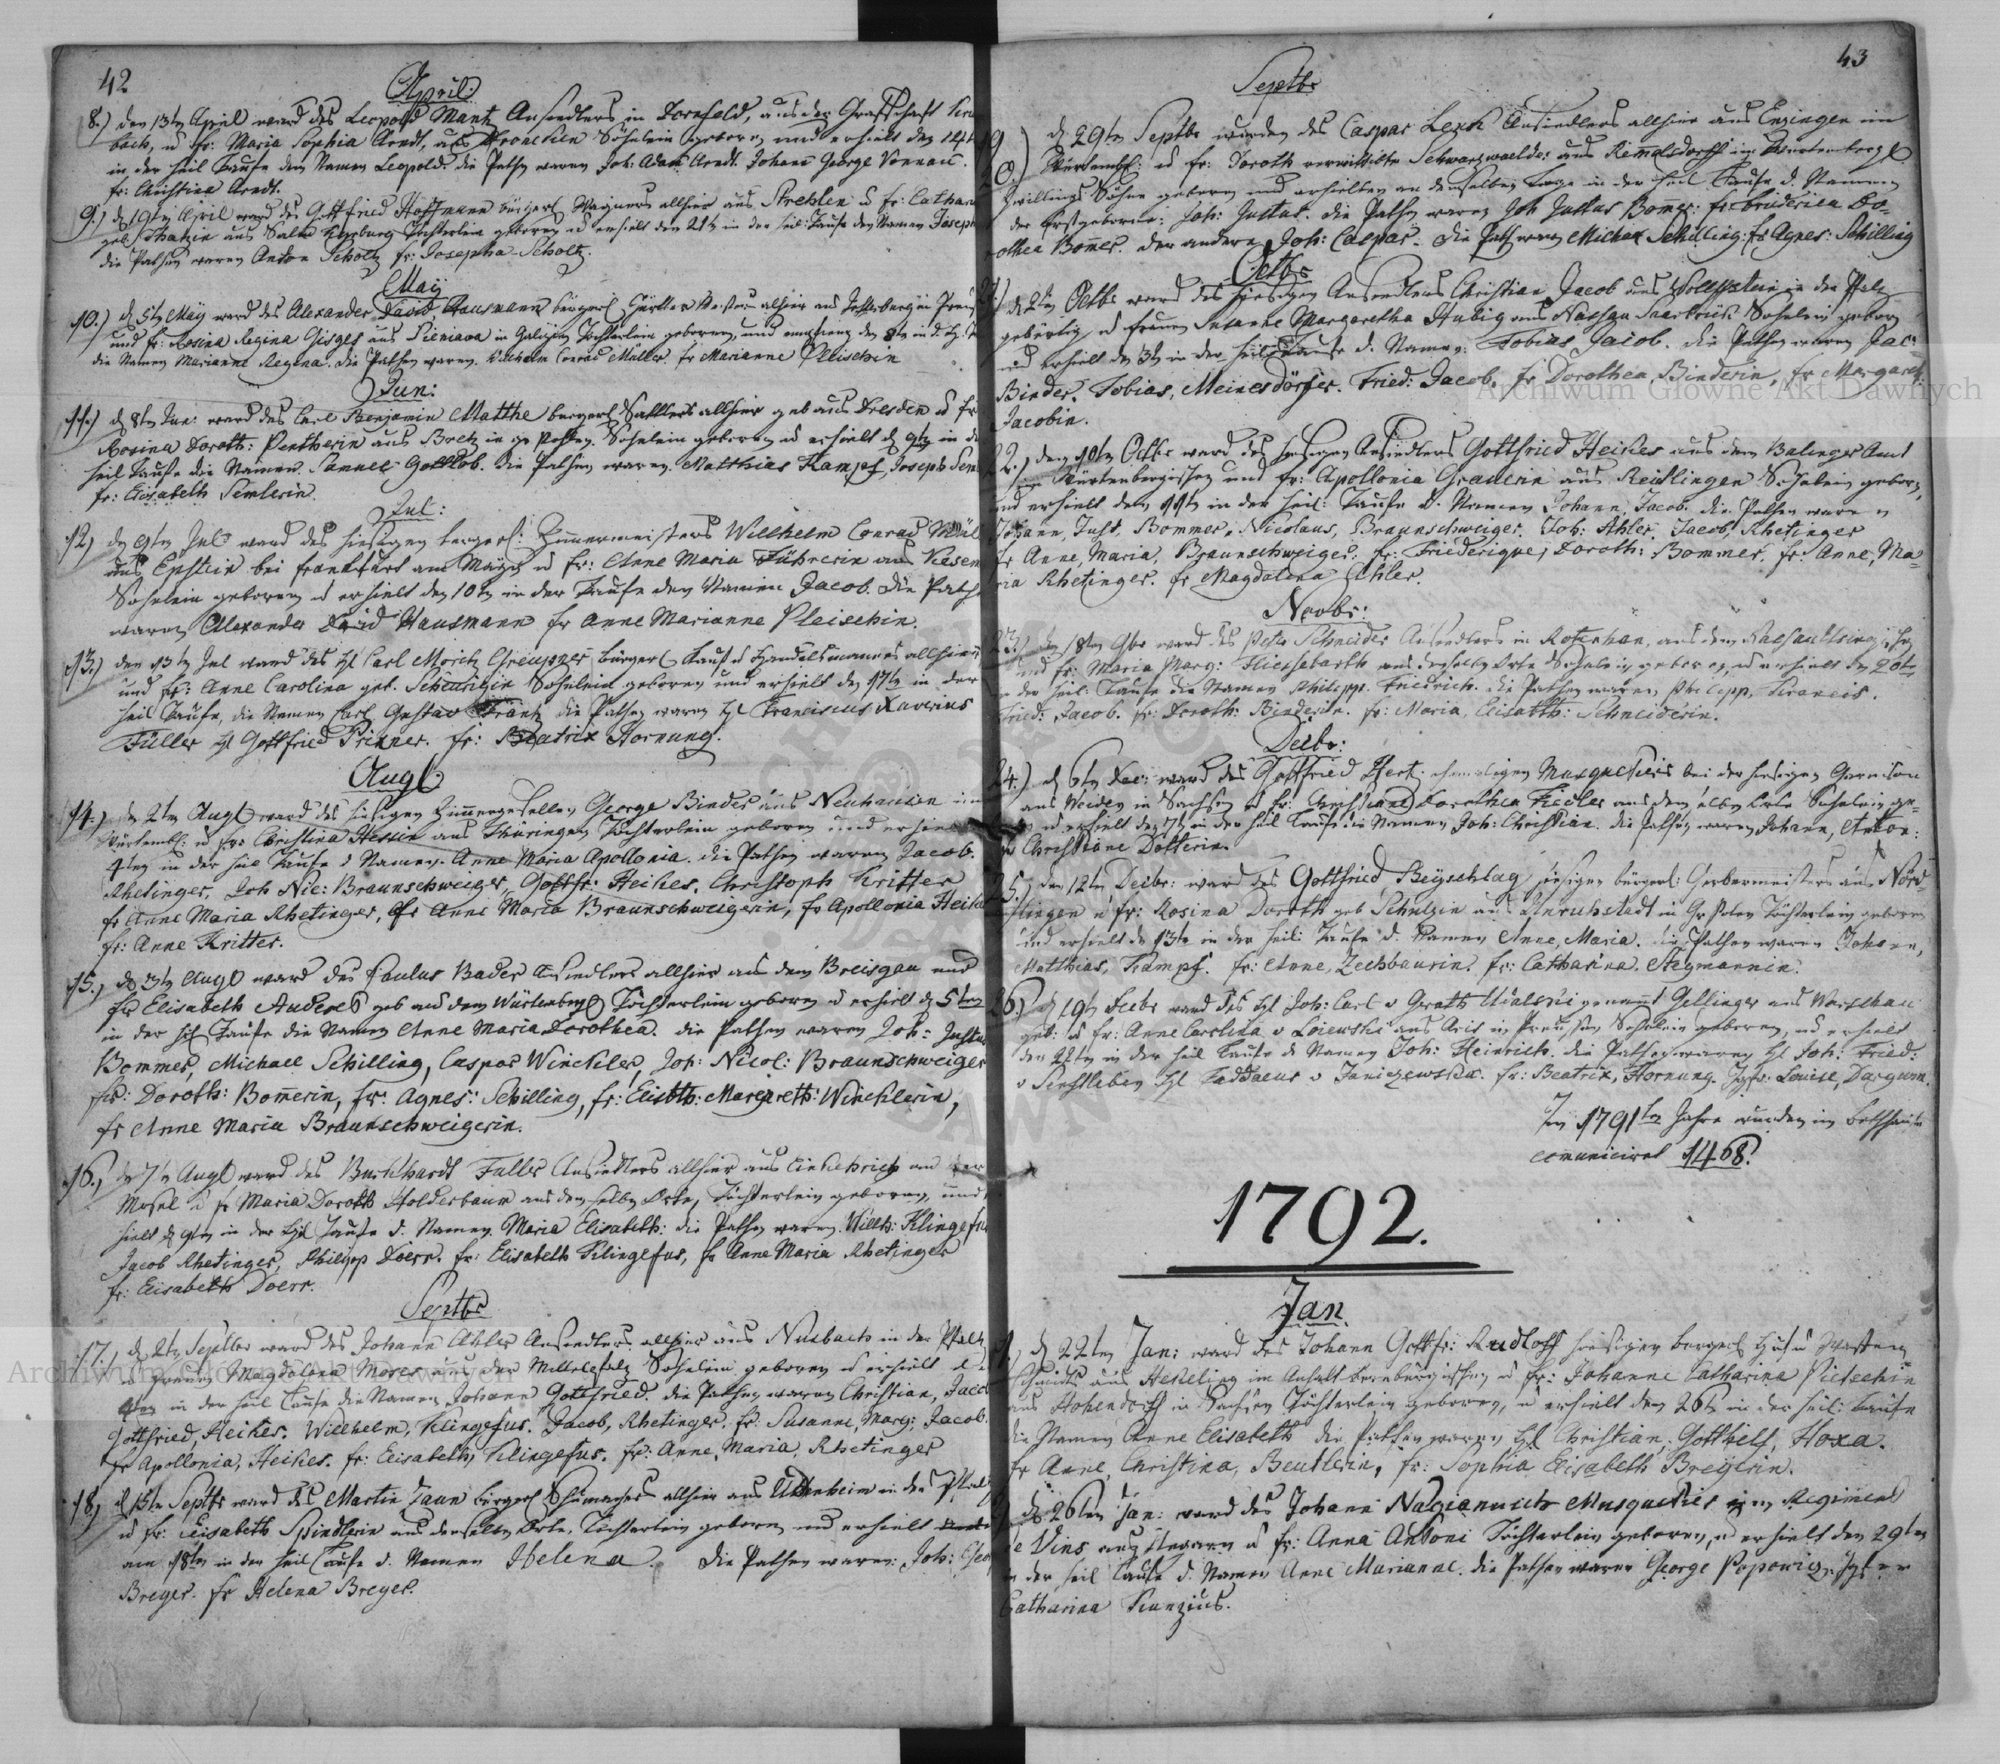 42
April.
8.) den 13tn April ward des Leopold Mantz Ansiedlers in Dornfeld, aus der Grafschaft
bach, u fr: Maria Sophia Arndt, aus Söhnlein geboren und erhielt den 14t
in der heil Taufe den Namen Leopold. die Pathen waren Joh: Adam Arndt. Johann George Vonnau.
fr: Christina Arndt.
9.) d 19tn April ward des Gottfried Hoffmann bürgerl Wagners allhier aus Strehlen u fr: Cathar
geb Schatzin aus Töchterlein geboren u erhielt den 21t in der heil Taufe den Namen Joseph
die Pathen waren Anton Scholtz fr: Josepha Scholtz.
May
10.) d 5tn May ward des Alexander David Hausmann bürgerl Gürtler Meisters allhier aus in Preuß
und fr: Rosina Regina aus Sieniava in Galizien Töchterlein geboren, und empfieng den 8tn in d h. T
die Namen Marianne Regina. die Pathen waren. Wilhelm Conrad Müller. fr Marianne Pleischin
Jun:
11.) d 8tn Jun: ward des Carl Benjamin Matthe bürgerl Sattlers allhier geb aus Dresden u fr
Rosina Doroth: aus in gr Pohlen. Söhnlein geboren u erhielt d 9tn in d
heil Taufe die Namen. Samuel Gottlob. die Pathen waren. Matthias Kampf, Joseph Sem
fr: Elisabeth Semlerin.
Jul:
12) d 9tn Jul: ward des hiesigen bürgerl: Zimmermeisters Willhelm Conrad Mül
aus Epstein bei Frankfurt am Mayn u fr: Anne Maria Führerin aus
Söhnlein geboren u erhielt den 10tn in der Taufe den Namen Jacob. die Path
waren Alexander David Hausmann fr Anne Marianne Pleischin.
13.) den 13tn Jul ward des H Carl Moritz bürgerl Kauf u Handelsmannes allhier
und fr: Anne Carolina geb. Söhnlein geboren und erhielt den 17tn in der
heil Taufe, die Namen Carl Gustav Frantz die Pathen waren H Franciscus Xaverius
Füller H Gottfried Prixner. fr: Beatrix Hornung.
Augt
14.) d 2tn Augt ward des hiesigen Zimmergesellen George Binder aus Neuhausen im
Würtemb: u fr: Christina Hessin aus Thüringen Töchterlein geboren und erhie
4ten in der heil Taufe d Namen. Anne Maria Apollonia. die Pathen waren Jacob.
Rhetinger, Joh Nic: Braunschweiger, Gottfr: Heikes, Christoph Kritter
fr Anne Maria Rhetinger, fr Anne Maria Braunschweigerin, fr Apollonia Heik
fr: Anne Kritter.
15.) d 3tn Augt ward des Paulus Bader Ansiedlers allhier aus dem Breisgau und
fr Elisabeth geb aus dem Würtenberg Töchterlein geboren u erhielt d 5ten
in der heil Taufe die Namen Anne Maria Dorothea. die Pathen waren Joh: Justus
Bommer, Michael Schilling, Caspar Winckler, Joh: Nicol: Braunschweiger
fr: Doroth: Bomerin, fr: Agnes: Schilling, fr: Elisbth: Margareth: Wincklerin,
fr Anne Maria Braunschweigerin.
16.) d 7tn Augt ward des Burkhardt Faller Ansiedlers allhier aus an der
Mosel u fr Maria Doroth Holderbaum aus demselben Orte, Töchterlein geboren, und
hielt d 9tn in der heil Taufe d. Namen. Maria Elisabeth: die Pathen waren. Willh: Klingefus
Jacob Rhetinger, Philipp Doerr. fr: Elisabeth Klingefus, fr Anne Maria Rhetinger
fr: Elisabeth Doerr.
Septbr
17.) d 2tn Septber ward des Johann Ahler Ansiedlers allhier aus Nusbach in der Pfaltz
u frauen Magdalena Moses aus der Söhnlein geboren u erhielt d
4ten in der heil Taufe die Namen Johann Gottfried. die Pathen waren Christian, Jacob
Gottfried, Heikes. Willhelm, Klingefus. Jacob, Rhetinger. fr: Susanne, Marg: Jacob.
fr Apollonia, Heikes. fr: Elisabeth, Klingefus. fr: Anne, Maria, Rhetinger
18) d 15tn Septbr ward des Martin Zaun bürgerl Schumachers allhier aus in der Pfaltz
u fr: Elisabeth Spindlerin aus demselben Orte, Töchterlein geboren und erhielt
am 18tn in der heil Taufe d. Namen Helena. Die Pathen waren: Joh: Geor
Breyer. fr Helena Breyer.
43
Septbr
19
20.) d 29tn Septbr wurden des Caspar Ansiedlers allhier aus Enzingen im
Würtemb: u fr: Doroth verwittibte Schwarzwaelder aus im Würtenberg
Zwillings Söhne geboren und erhielten an demselben Tage in der heil Taufe d. Namen
der Erstgeborene: Joh: Justus. die Pathen waren Joh Justus Bomer: fr: Do-
rothea Bomer. der andere Joh: Caspar. die Path waren Michael Schilling: fr Agnes: Schilling
Octbr
d 2tn Octbr ward des hiesigen Ansiedlers Christian Jacob aus in der Pfalz
gebürtig u frauen Susanne Margaretha Hubig aus Nassau Saarbrück Söhnlein geboren
und erhielt d 3tn in der heil Taufe d. Namen: Tobias Jacob. die Pathen waren Jac:
Binder, Tobias, Meinesdörfer. Fried: Jacob, fr Dorothea, Binderin, fr Margareth
Jacobin.
22.) den 10tn Octbr ward des hiesigen Ansiedlers Gottfried Heikes aus dem Balinger Amt
im Würtenbergischen und fr: Apollonia Grauerin aus Reutlingen Söhnlein geboren,
und erhielt den 11tn in der heil: Taufe d. Namen Johann, Jacob. die Pathen waren
Johann, Just, Bommer, Nicolaus, Braunschweiger. Joh: Ahler. Jacob, Rhetinger
fr Anne, Maria, Braunschweiger. fr: Friederique, Doroth: Bommer. fr: Anne, Ma=
ria Rhetinger. fr Magdalena Ahler.
Novbr:
23.) den 18tn 9br ward des Peter Schneider Ansiedlers in Rotenhan, aus dem
und fr: Maria Marg: aus demselben Orte Söhnlein geboren, u erhielt den 20tn
in der heil: Taufe die Namen Philipp. Friedrich. die Pathen waren Philipp, Francis.
Fried: Jacob. fr: Doroth: Binderin. fr: Maria, Elisabth: Schneiderin.
Decbr:
24.) d 6tn Dec: ward des Gottfried ehemaligen Musquetiers bei der hiesigen Garnison
aus Weiden in Sachsen u fr: Christiane Dorothea Fiedler aus demselben Orte Söhnlein ge-
u erhielt den 7tn in der heil Taufe die Namen Joh: Christian. die Pathen waren Johann, Anton:
fr Christiane Dotterin.
25.) den 12tn Decbr: ward des Gottfried, Beyschlag hiesigen bürgerl: Gerbermeisters aus Nörd
lingen u fr: Rosina Doroth geb Schulzin aus Unruhstadt in Gr Polen Töchterlein geboren
und erhielt d 13tn in der heil: Taufe d. Namen Anne, Maria. die Pathen waren Johann,
Matthias, Kampf. fr: Anne, Zechbaurin. fr: Catharina. Stegmannin.
26.) d 19tn Decbr ward des H Joh: Carl v genannt Gellinger aus Warschau
geb: u fr: Anne Carolina v Loiewski aus Aris in Preußen Söhnlein geboren, u erhielt
den 22tn in der heil Taufe d Namen Joh: Heinrich. die Pathen waren H Joh: Fried:
v H Taddaeus v Janiczewski. fr: Beatrix, Hornung. Jgfr: Louise, Dargum.
Im 1791ten Jahre wurden im Bethhause
comuniciret 1468.
1792.
Jan.
1.) d 22ten Jan: ward des Johann Gottfr: Rudloff hiesigen bürgerl Huf u Waffen
schmidts aus im Anhalt bernburgischen u fr: Johanne Catharina Pietschin
aus Hohendorff in Sachsen Töchterlein geboren, u erhielt den 26tn in der heil: Taufe
die Namen Anne Elisabeth die Pathen waren H Christian, Gotthelf, Hoxa.
fr Anne, Christina, Beutlerin, fr: Sophia Elisabeth Breyerin.
d 26ten Jan: ward des Johann Musquetier im Regiment
de Vins aus Ungarn u fr: Anna Antoni Töchterlein geboren, u erhielt den 29ten
in der heil Taufe d. Namen Anne Marianne. die Pathen waren George Popowiz.
Catharina Kunzius.
Archiwum Główne Akt Dawnych
Archiwum Główne Akt Dawnych